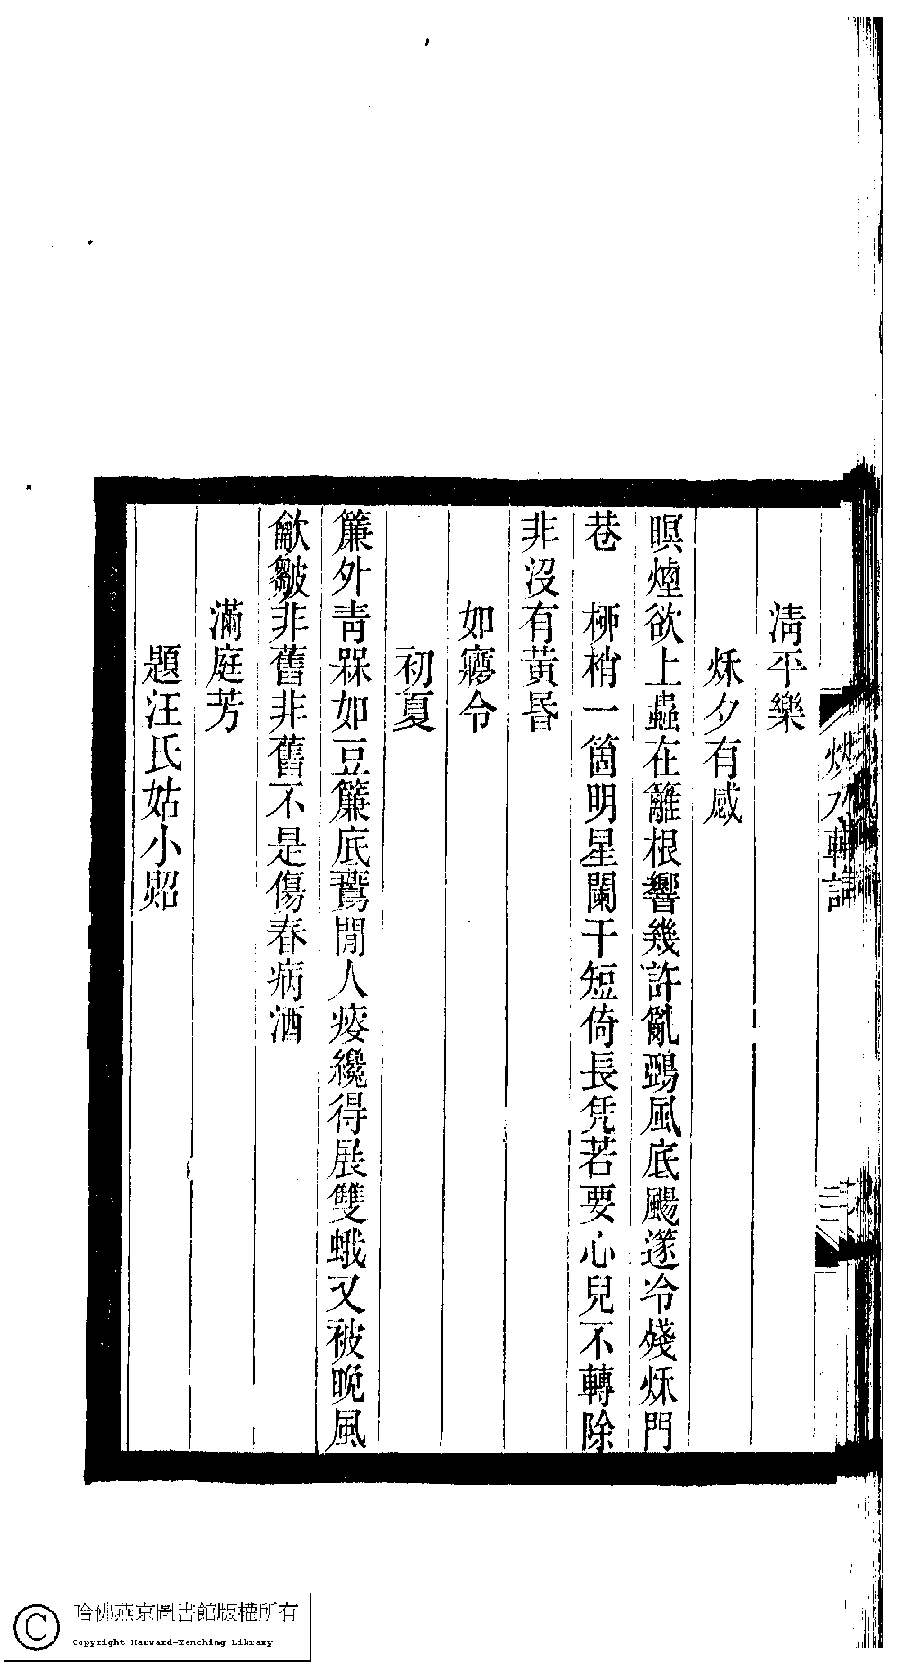 清平樂
秌夕有感
暝煙欲上蟲在籬根響幾許亂鵶風底颺遂冷殘秌門
巷　桺梢一箇明星闌干短倚長凭若要心兒不轉除
非沒有黃昬
如㝱令
初夏
簾外靑槑如豆簾底鶯閒人瘦纔得展雙蛾又被晚風
龡皺非舊非舊不是傷春病酒
滿庭芳
題汪氏姑小炤
哈佛燕京圖書館版權所有
Copyright Harvard-Yenching Library